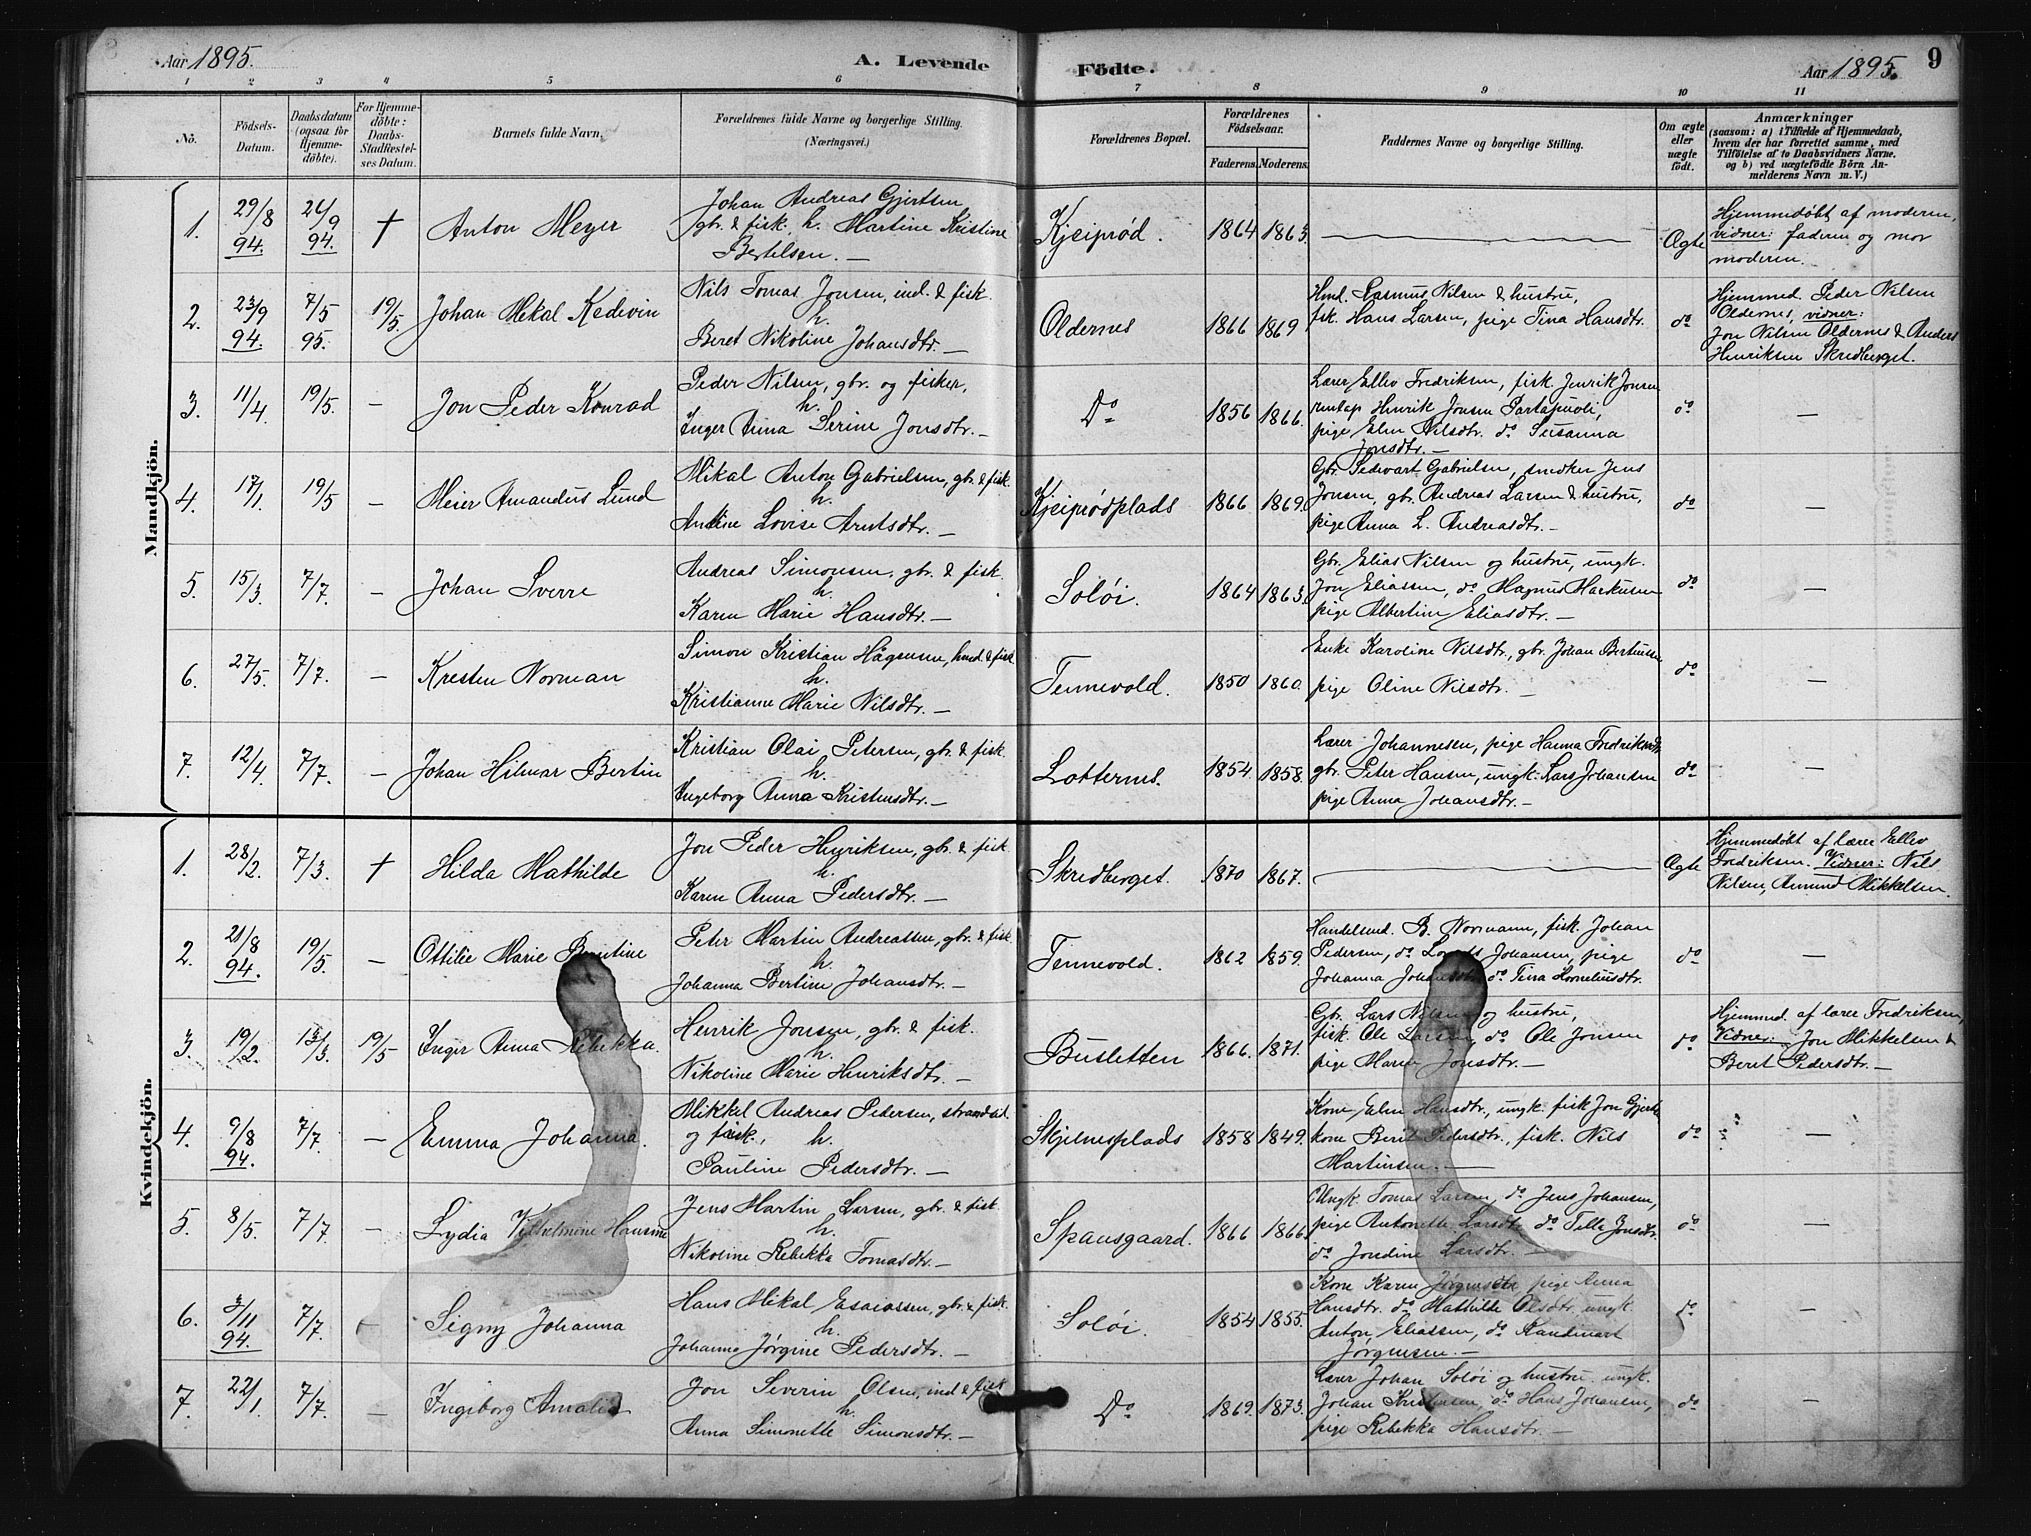 Aar 1895. A. Levende Fødte. Aar 1895. 9
1 2 3 4 5 6 7 8 9 10 11
No. Födsels-Datum. Daabsdatum (ogsaa for Hjemmedöbte). For Hjemmedöbte: Daabs-Stadfæstelses Datum. Barnets fulde Navn. Forældrenes fulde Navne og borgerlige Stilling. (Næringsvei.) Forældrenes Bopæl. Forældrenes Födselsaar. Faderens. Moderens. Faddernes Navne og borgerlige Stilling. Om ægte eller uægte födt. Anmærkninger (saasom: a) i Tilfælde af Hjemmedaab, hvem der har forrettet samme, med Tilföielse af to Daabsvidners Navne, og b) ved uægtefödte Börn Anmelderens Navn m. V.)
Mandkjön.
1. 29/8 94. 26/9 94. † Anton Meyer
Johan Andreas Gjertsen
gbr. & fisk. h. Martine Kristine
Bertelsen. —
Kjeiprød. 1864 1863. — Ægte
Hjemmedøbt af moderen,
vidner: faderen og mor
moderen.
2. 23/9 94. 7/5 95. 19/5. Johan Mekal Kedevin
Nils Tomas Jonsen, ind. & fisk.
h.
Beret Nikoline Johansdtr. —
Oldernes 1866 1869
Hmd. Rasmus Nilsen & hustru,
fsk. Hans Larsen, pige Tina Hansdtr.
do
Hjemmed. Peder Nilsen
Oldernes, vidner:
Jon Nilsen Oldernes & Anders
Henriksen Skredberget.
3. 11/4 19/5. — Jon Peder Konrad
Peder Nilsen, gbr. og fisker,
h.
Inger Anna Serine Jonsdtr. —
Do 1856 1866.
Lærer Ellev Fredriksen, fisk. Henrik Jonsen
Henrik Jonsen
pige Elen Nilsdtr. do Susanna
Jonsdtr. —
do —
4. 17/1. 19/5 — Meier Amandus Lund
Mikal Anton Gabrielsen, gbr. & fisk.
h.
Andine Lovise Arntsdtr. —
Kjeiprødplads 1866 1869.
Gbr. Sedevart Gabrielsen, snedker Jens
Jonsen, gbr. Andreas Larsen & hustru,
pige Anna L. Andreasdtr. —
do —
5. 15/3. 7/7. — Johan Sverre
Andreas Simonsen, gbr. & fisk.
h.
Karen Marie Hansdtr. —
Soløi. 1864 1863.
Gbr. Elias Nilsen og hustru, ungk.
Jon Eliassen, do Magnus Markusen
pige Albertine Eliasdtr. —
do —
6. 27/5. 7/7. — Kresten Norman
Simon Kristian Hågensen, hmd. & fisk
h.
Kristianne Marie Nilsdtr. —
Tennevold. 1850 1860.
Enke Karoline Nilsdtr., gbr. Johan Bertinsen
pige Oline Nilsdtr. —
do —
7. 12/4. 7/7. — Johan Hilmar Bertin
Kristian Olai Petersen, gbr. & fisk.
h.
Ingeborg Anna Kristensdtr. —
Lotternes. 1854. 1858.
Lærer Johannesen, pige Hanna Fredriksdtr.
gbr. Peter Hansen, ungk. Lars Johansen
pige Anna Johansdtr. —
do —
Kvindekjön.
1. 28/2. 7/3. † Hilda Mathilde
Jon Peder Henriksen, gbr. & fisk.
h.
Karen Anna Pedersdtr. —
Skredberget. 1870 1867. — Ægte
Hjemmedøbt af lærer Ellev
Fredriksen. Vidner: Nils
Nilsen, Amund Mikkelsen.
2. 21/8 94. 19/5. — Ottilie Marie Berntine
Peter Martin Andreassen, gbr. & fisk.
h.
Johanna Bertine Johansdtr. —
Tennevold. 1862 1859.
Handelsmd. B. Normann, fisk. Johan
Pedersen, do Johansen, pige
Johanna Johansdtr. do Tina Korneliusdtr.
do —
3. 19/2. 13/3. 19/5 Inger Anna Rebekka.
Henrik Jonsen, gbr. & fisk.
h.
Nikoline Marie Henriksdtr. —
Busletten 1866. 1871.
Gbr. Lars Nilsen og hustru,
fisk. Ole Larsen, do Ole Jonsen
pige Maren Jonsdtr. —
do
Hjemmed. af lærer Fredriksen,
Vidner: Jon Mikkelsen &
Beret Pedersdtr. —
4. 9/8 94. 7/7. — Emma Johanna.
Mikkel Andreas Pedersen, strandsid.
og fisk. h.
Pauline Pedersdtr. —
Skjelnesplads 1858 1849.
Kone Elen Hansdtr., ungk. fisk Jon Gjerts.
kone Berit Pedersdtr., fisk. Nils
Martinsen. —
do —
5. 8/5. 7/7. — Lydia Vilhelmine Hansine
Jens Martin Larsen, gbr. & fisk.
h.
Nikoline Rebekka Tomasdtr. —
Spansgaard. 1866 1866.
Ungk. Tomas Larsen, do Jens Johansen,
pige Antonette Larsdtr. do Tella Jonsdtr.
do Jondine Larsdtr. —
do —
6. 3/11 94. 7/7. — Signy Johanna
Hans Mikal Esaiassen, gbr. & fisk.
h.
Johanna Jørgine Pedersdtr. —
Soløi. 1854 1855.
Kone Karen Jørgensdtr. pige Anna
Hansdtr. do Mathilde Olsdtr. ungk.
Anton Eliassen, do
Jørgensen. —
do —
7. 22/1. 7/7. — Ingeborg Amalie
Jon Severin Olsen, ind. & fisk
h.
Anna Simonette Simonsdtr. —
Do 1869. 1873.
Lærer Johan Soløi og hustru. ungk.
Johan Kristensen, do Hans Johansen,
pige Rebekka Hansdtr. —
do —